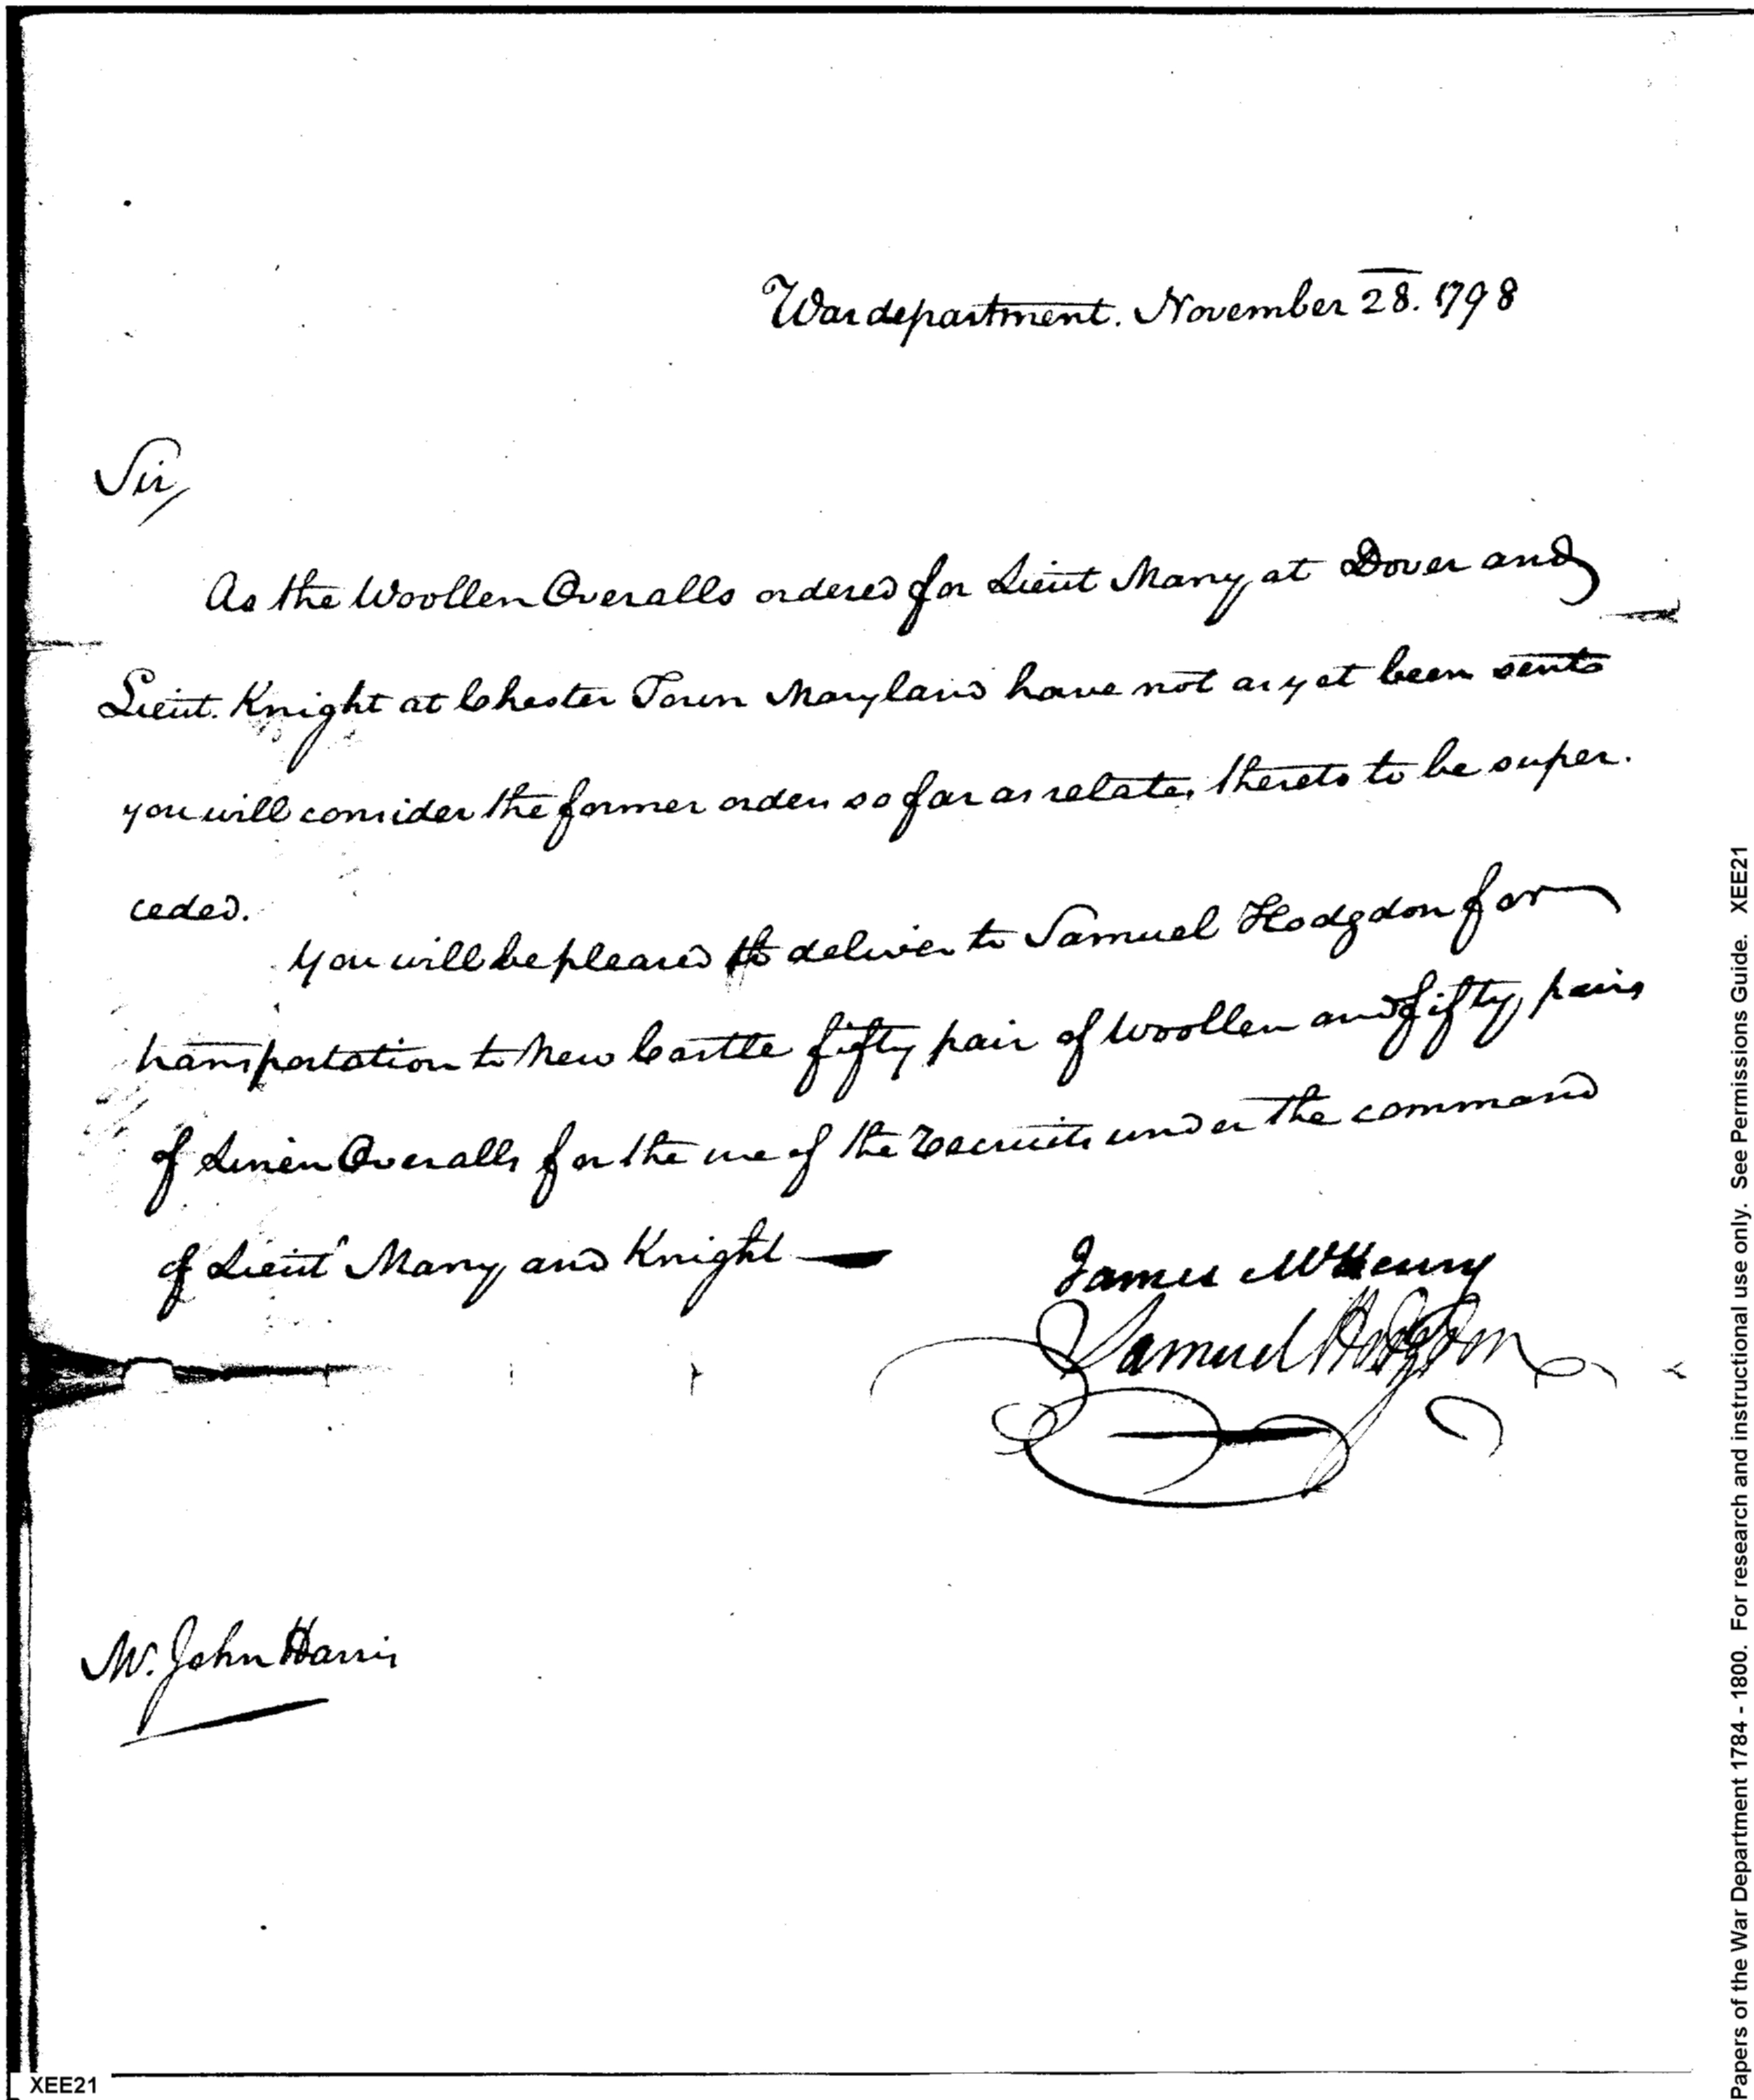 War department. November 28. 1798
Sir,
As the Woollen Overalls ordered for Lieut Many at Dover and
Lieut. Knight at Chester Town Maryland have not as yet been sent
you will consider the former order so far as relates thereto to be super.
ceded.
You will be pleased to deliver to Samuel Hodgdon for
transportation to New Castle fifty pair of Woollen and fifty pairs
of Linen Overalls for the use of the Recruits under the command
of Lieut Many and Knight
James McHenry
Samuel Hodgdon
Mr. John Harris
XEE21
Papers of the War Department 1784 - 1800. For research and instructional use only. See Permissions Guide. XEE21